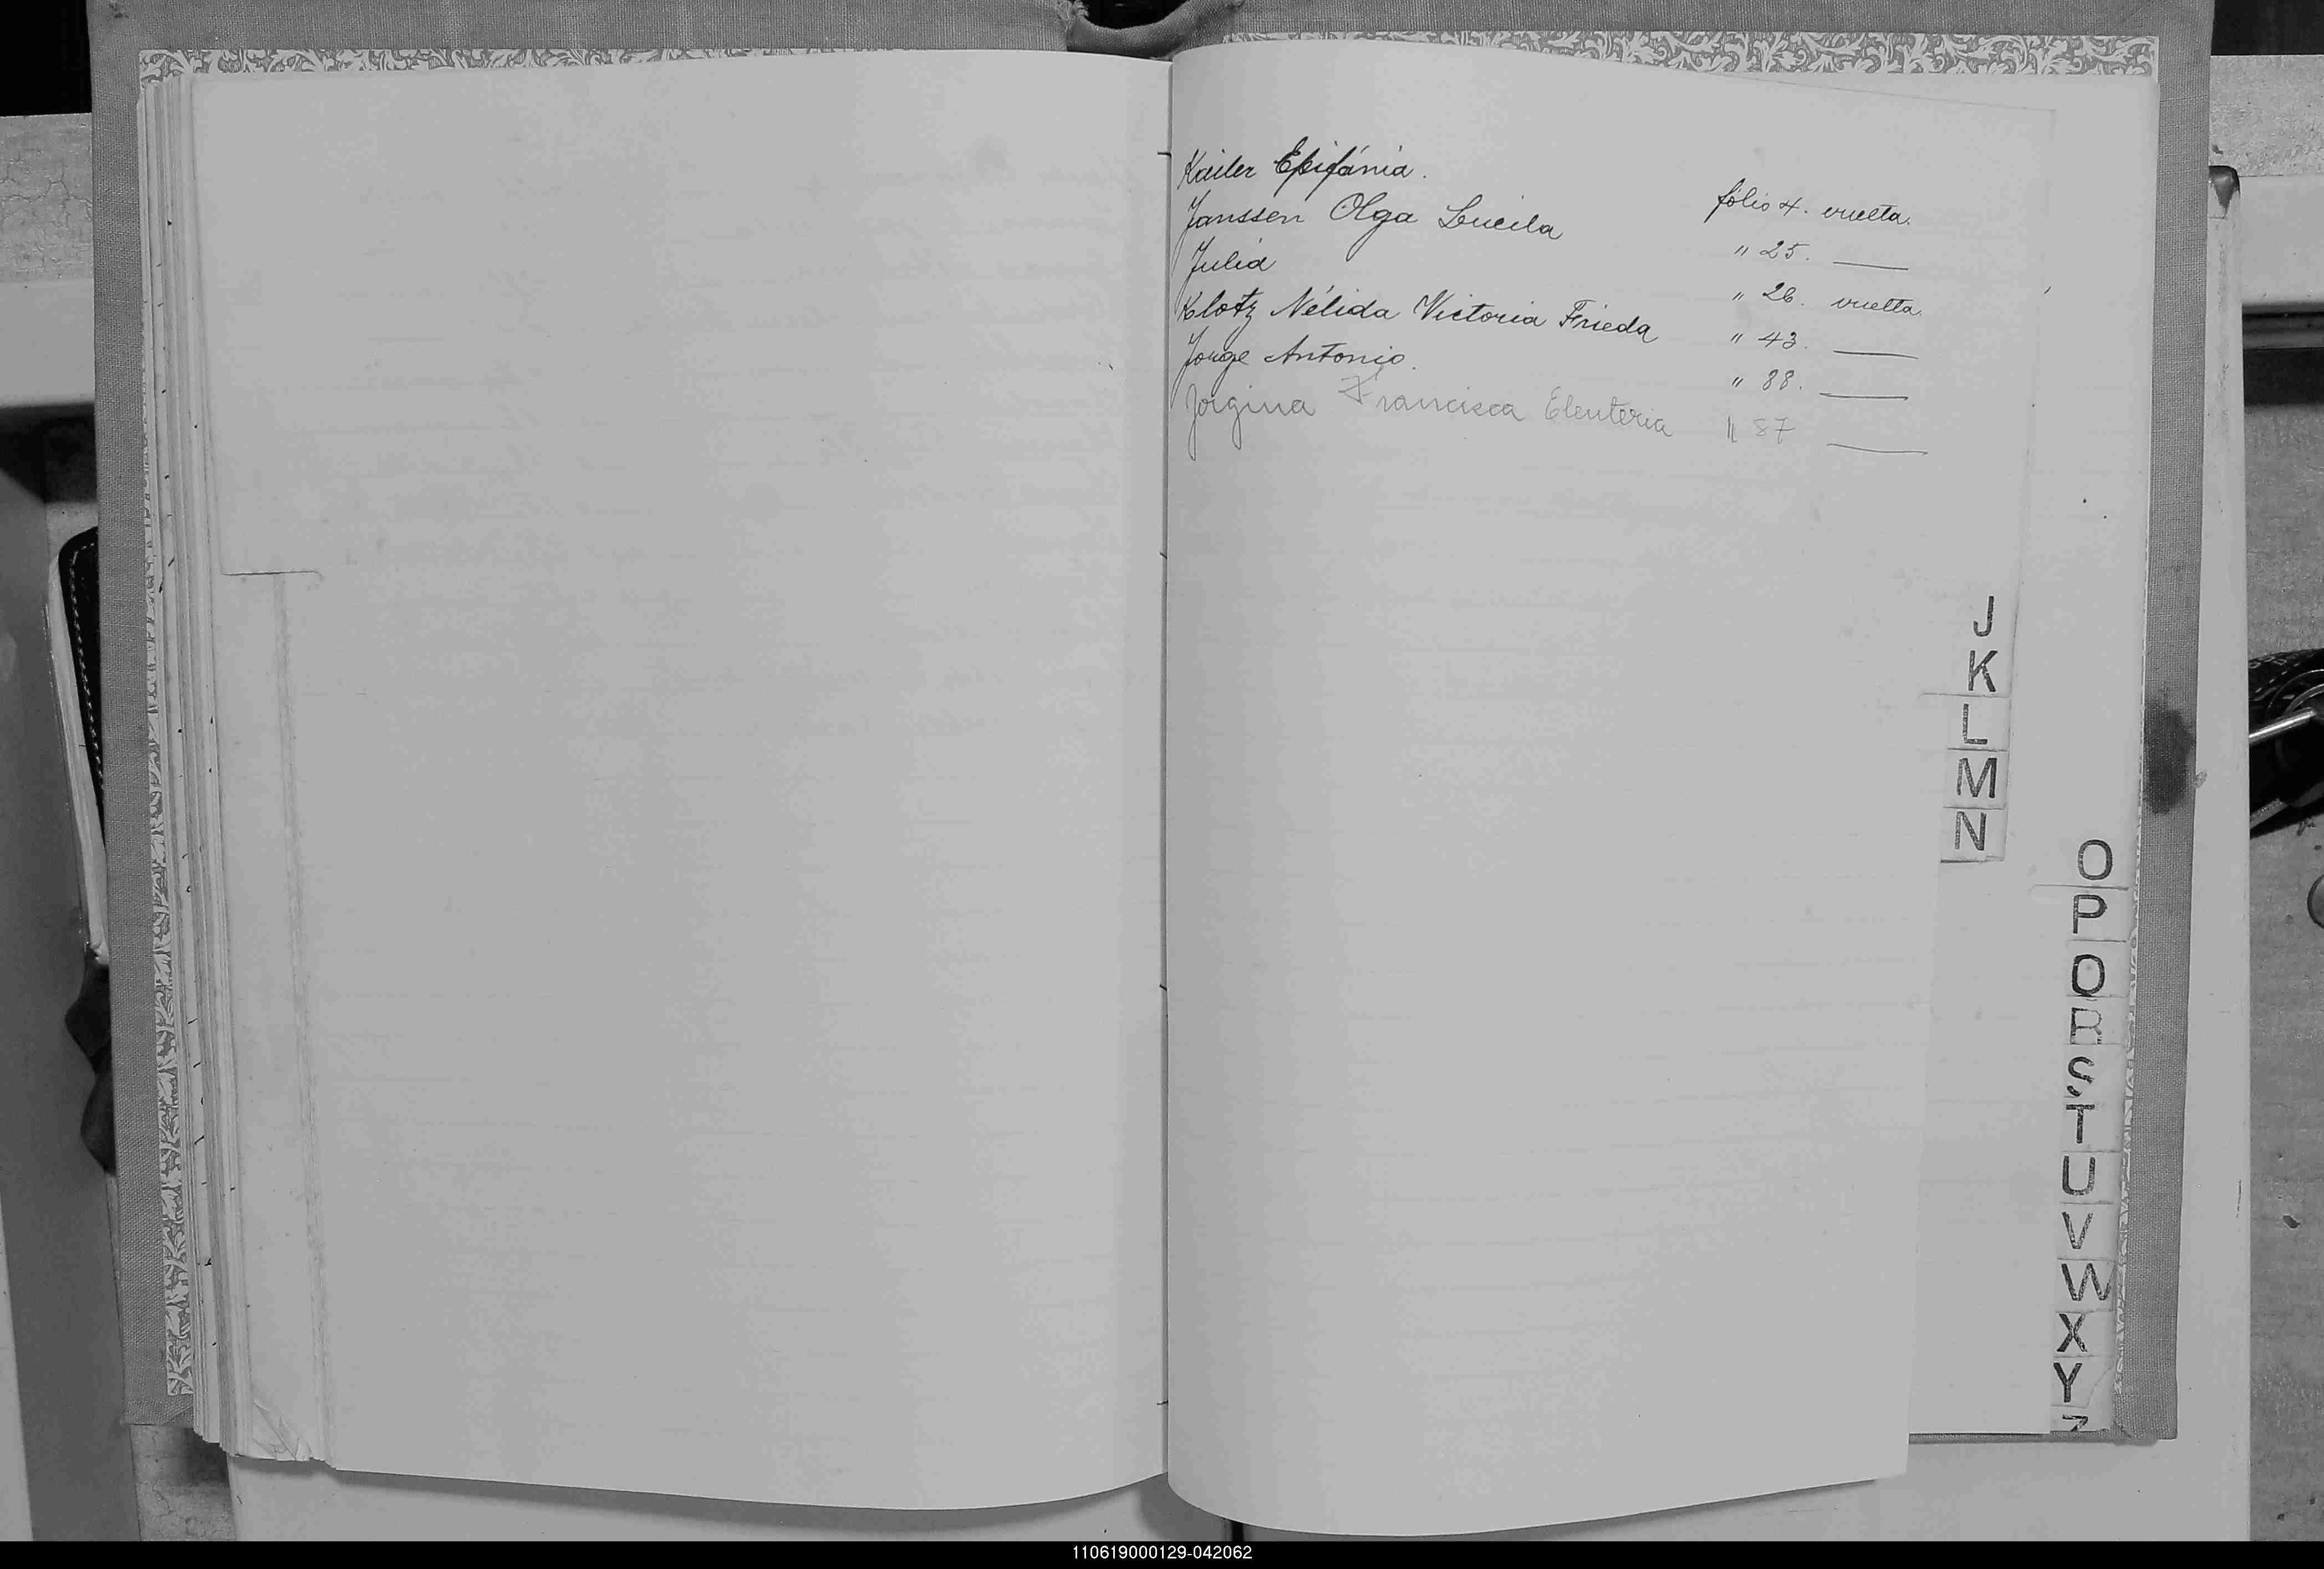 Kailer Epifánia. folio 4. vuelta.
Janssen Olga Lucila " 25. ___
Julia " 26. vuelta.
Klotz Nélida Victoria Frieda " 43. ___
Jorge Antonio. " 88. ___
Jorgina Francisca Eleuteria " 87 ___
J
K
L
M
N
O
P
Q
R
S
T
U
V
W
X
Y
Z
110619000129-042062